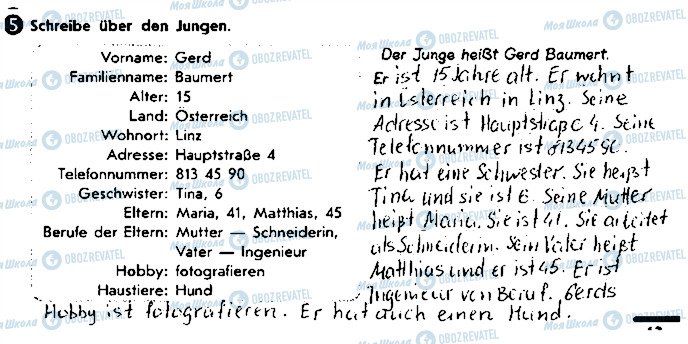 5 Schreibe über den Jungen.
Vorname: Gerd
Familienname: Baumert
Alter: 15
Land: Österreich
Wohnort: Linz
Adresse: Hauptstraße 4
Telefonnummer: 813 45 90
Geschwister: Tina, 6
Eltern: Maria, 41, Matthias, 45
Berufe der Eltern: Mutter — Schneiderin,
Vater — Ingenieur
Hobby: fotografieren
Haustiere: Hund
Der Junge heißt Gerd Baumert.
Er ist 15 Jahre alt. Er wohnt
in Österreich in Linz. Seine
Adresse ist Hauptstraße 4. Seine
Telefonnummer ist 8134590.
Er hat eine Schwester. Sie heißt
Tina und sie ist 6. Seine Mutter
heißt Maria. Sie ist 41. Sie arbeitet
als Schneiderin. Sein Vater heißt
Matthias und er ist 45. Er ist
Ingenieur von Beruf. Gerds
Hobby ist fotografieren. Er hat auch einen Hund.